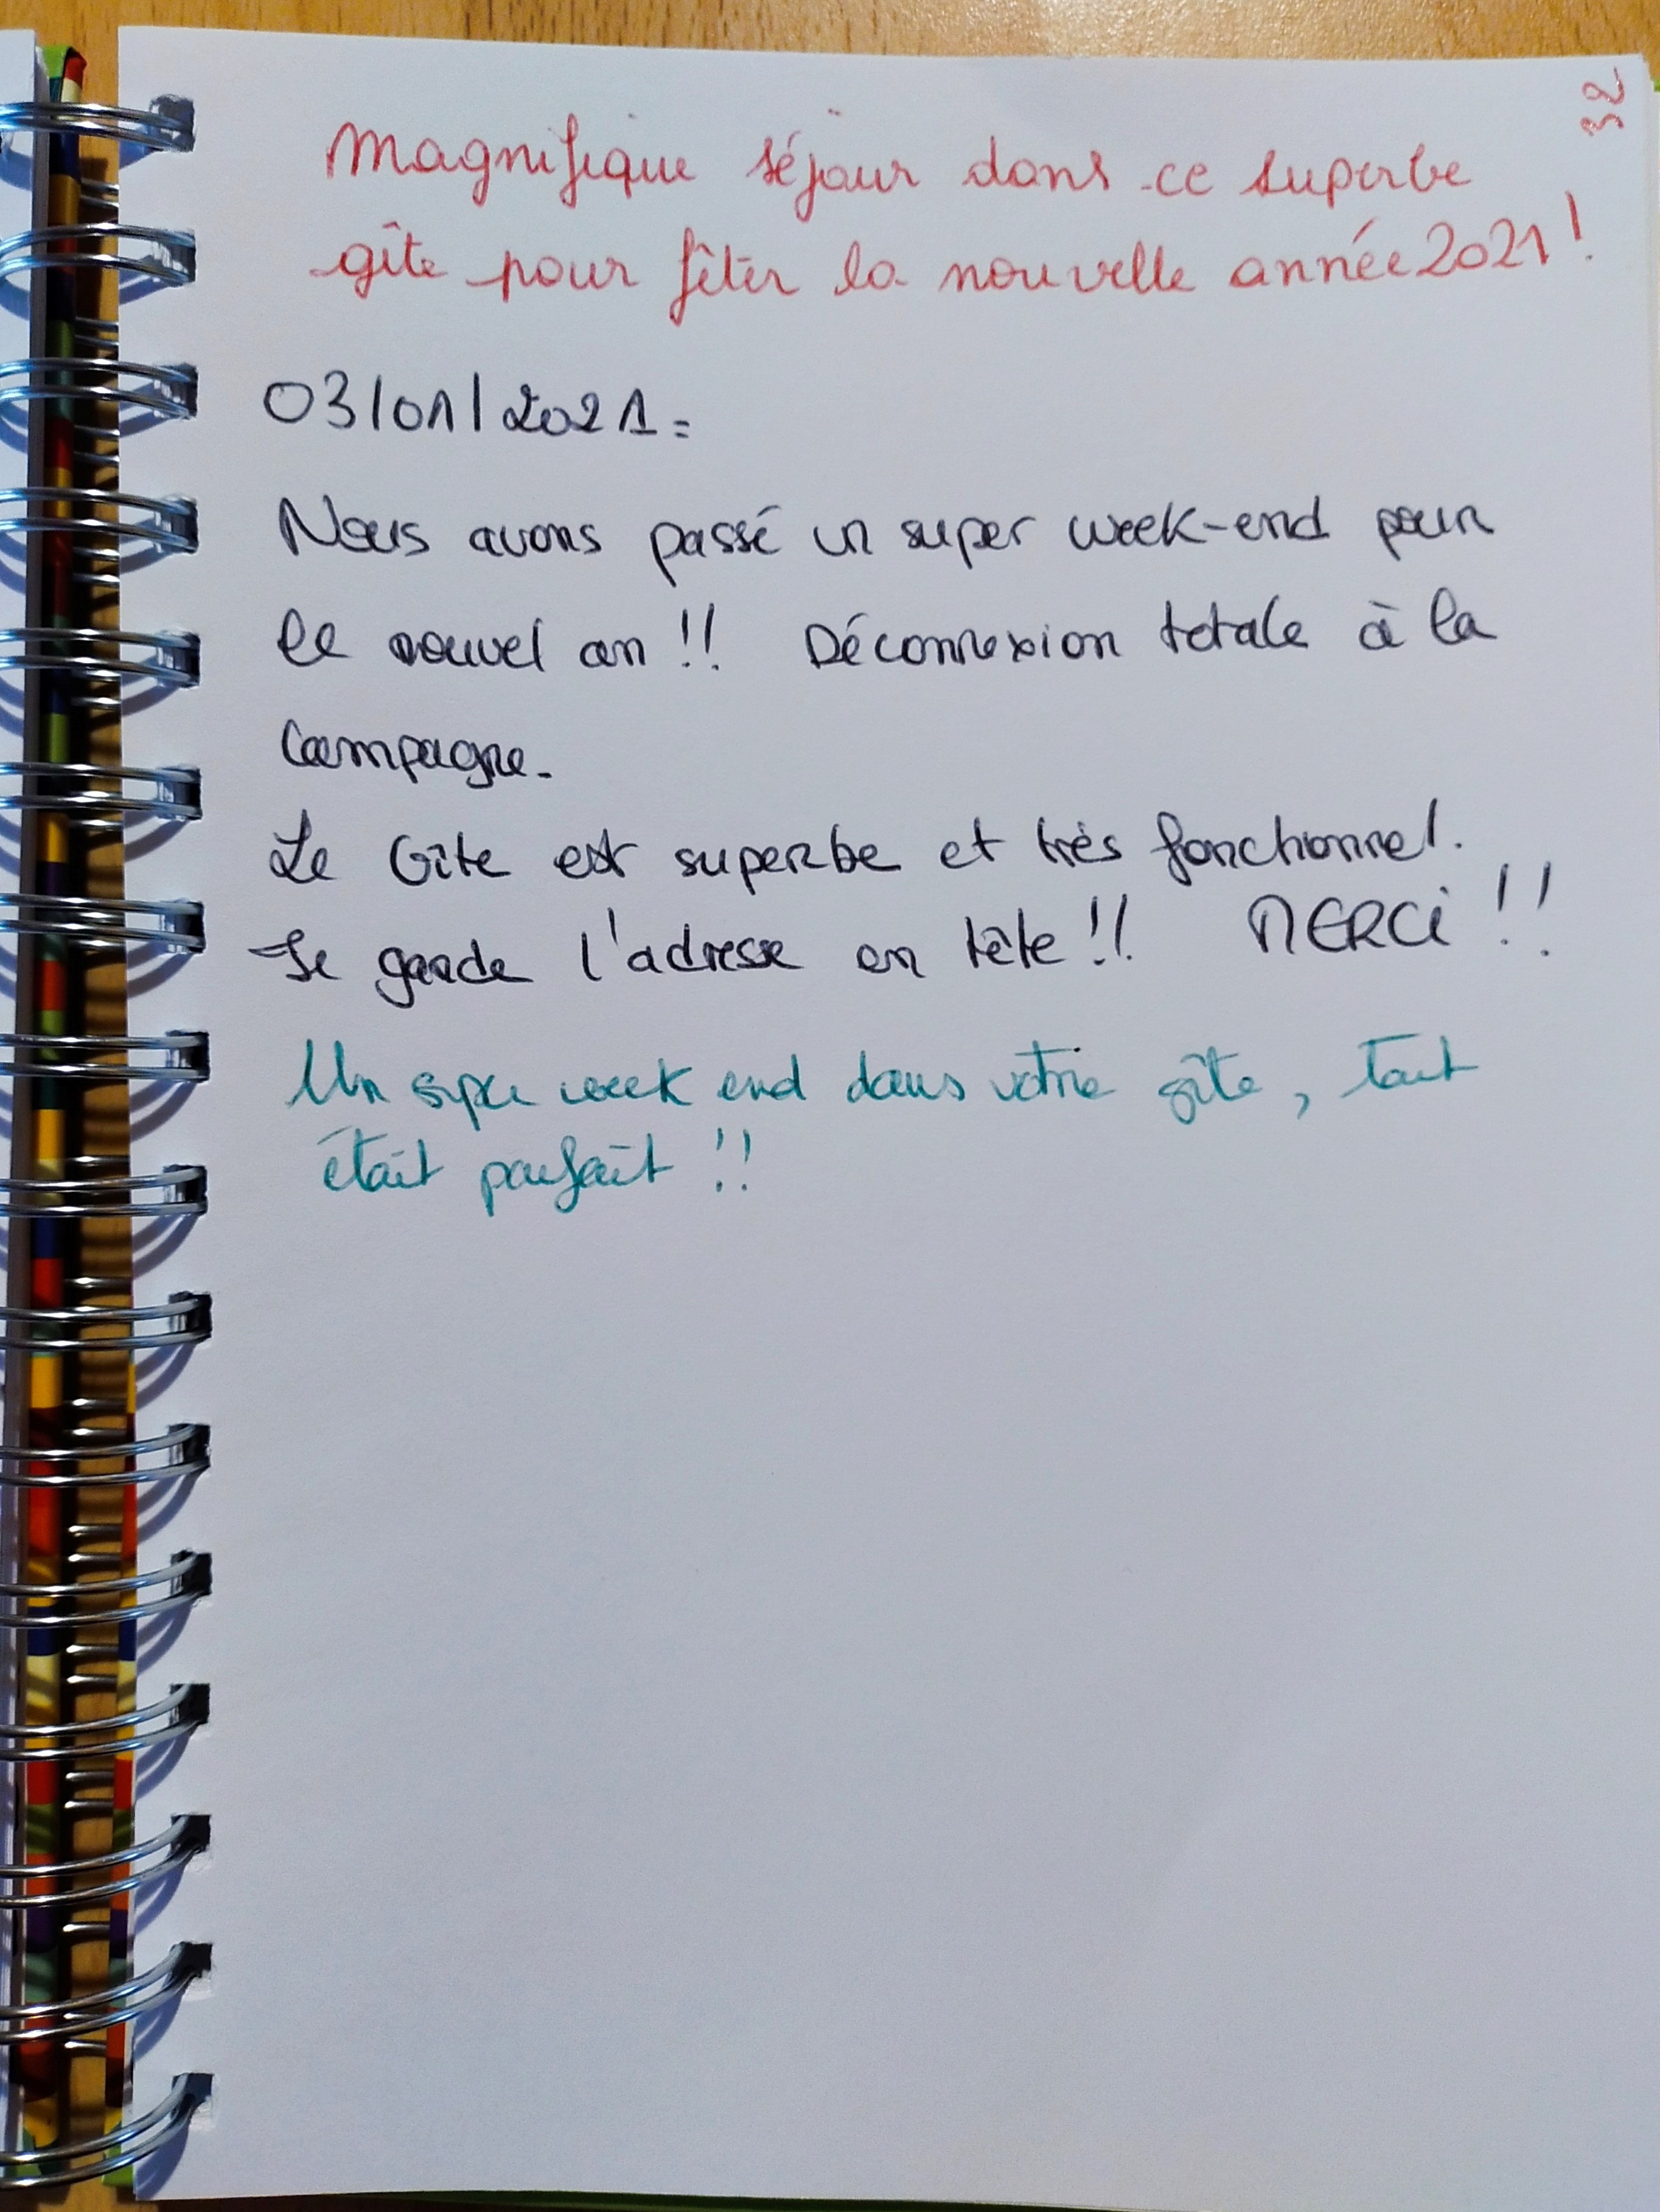 32
Magnifique séjour dans ce superbe
gîte pour fêter la nouvelle année 2021 !
03/01/2021 =
Nous avons passé un super week-end pour
le nouvel an !! Déconnexion totale à la
Campagne.
Le Gîte est superbe et très fonctionnel.
Je garde l'adresse en tête !! MERCi !!
Un super week end dans votre gîte, tout
était parfait !!